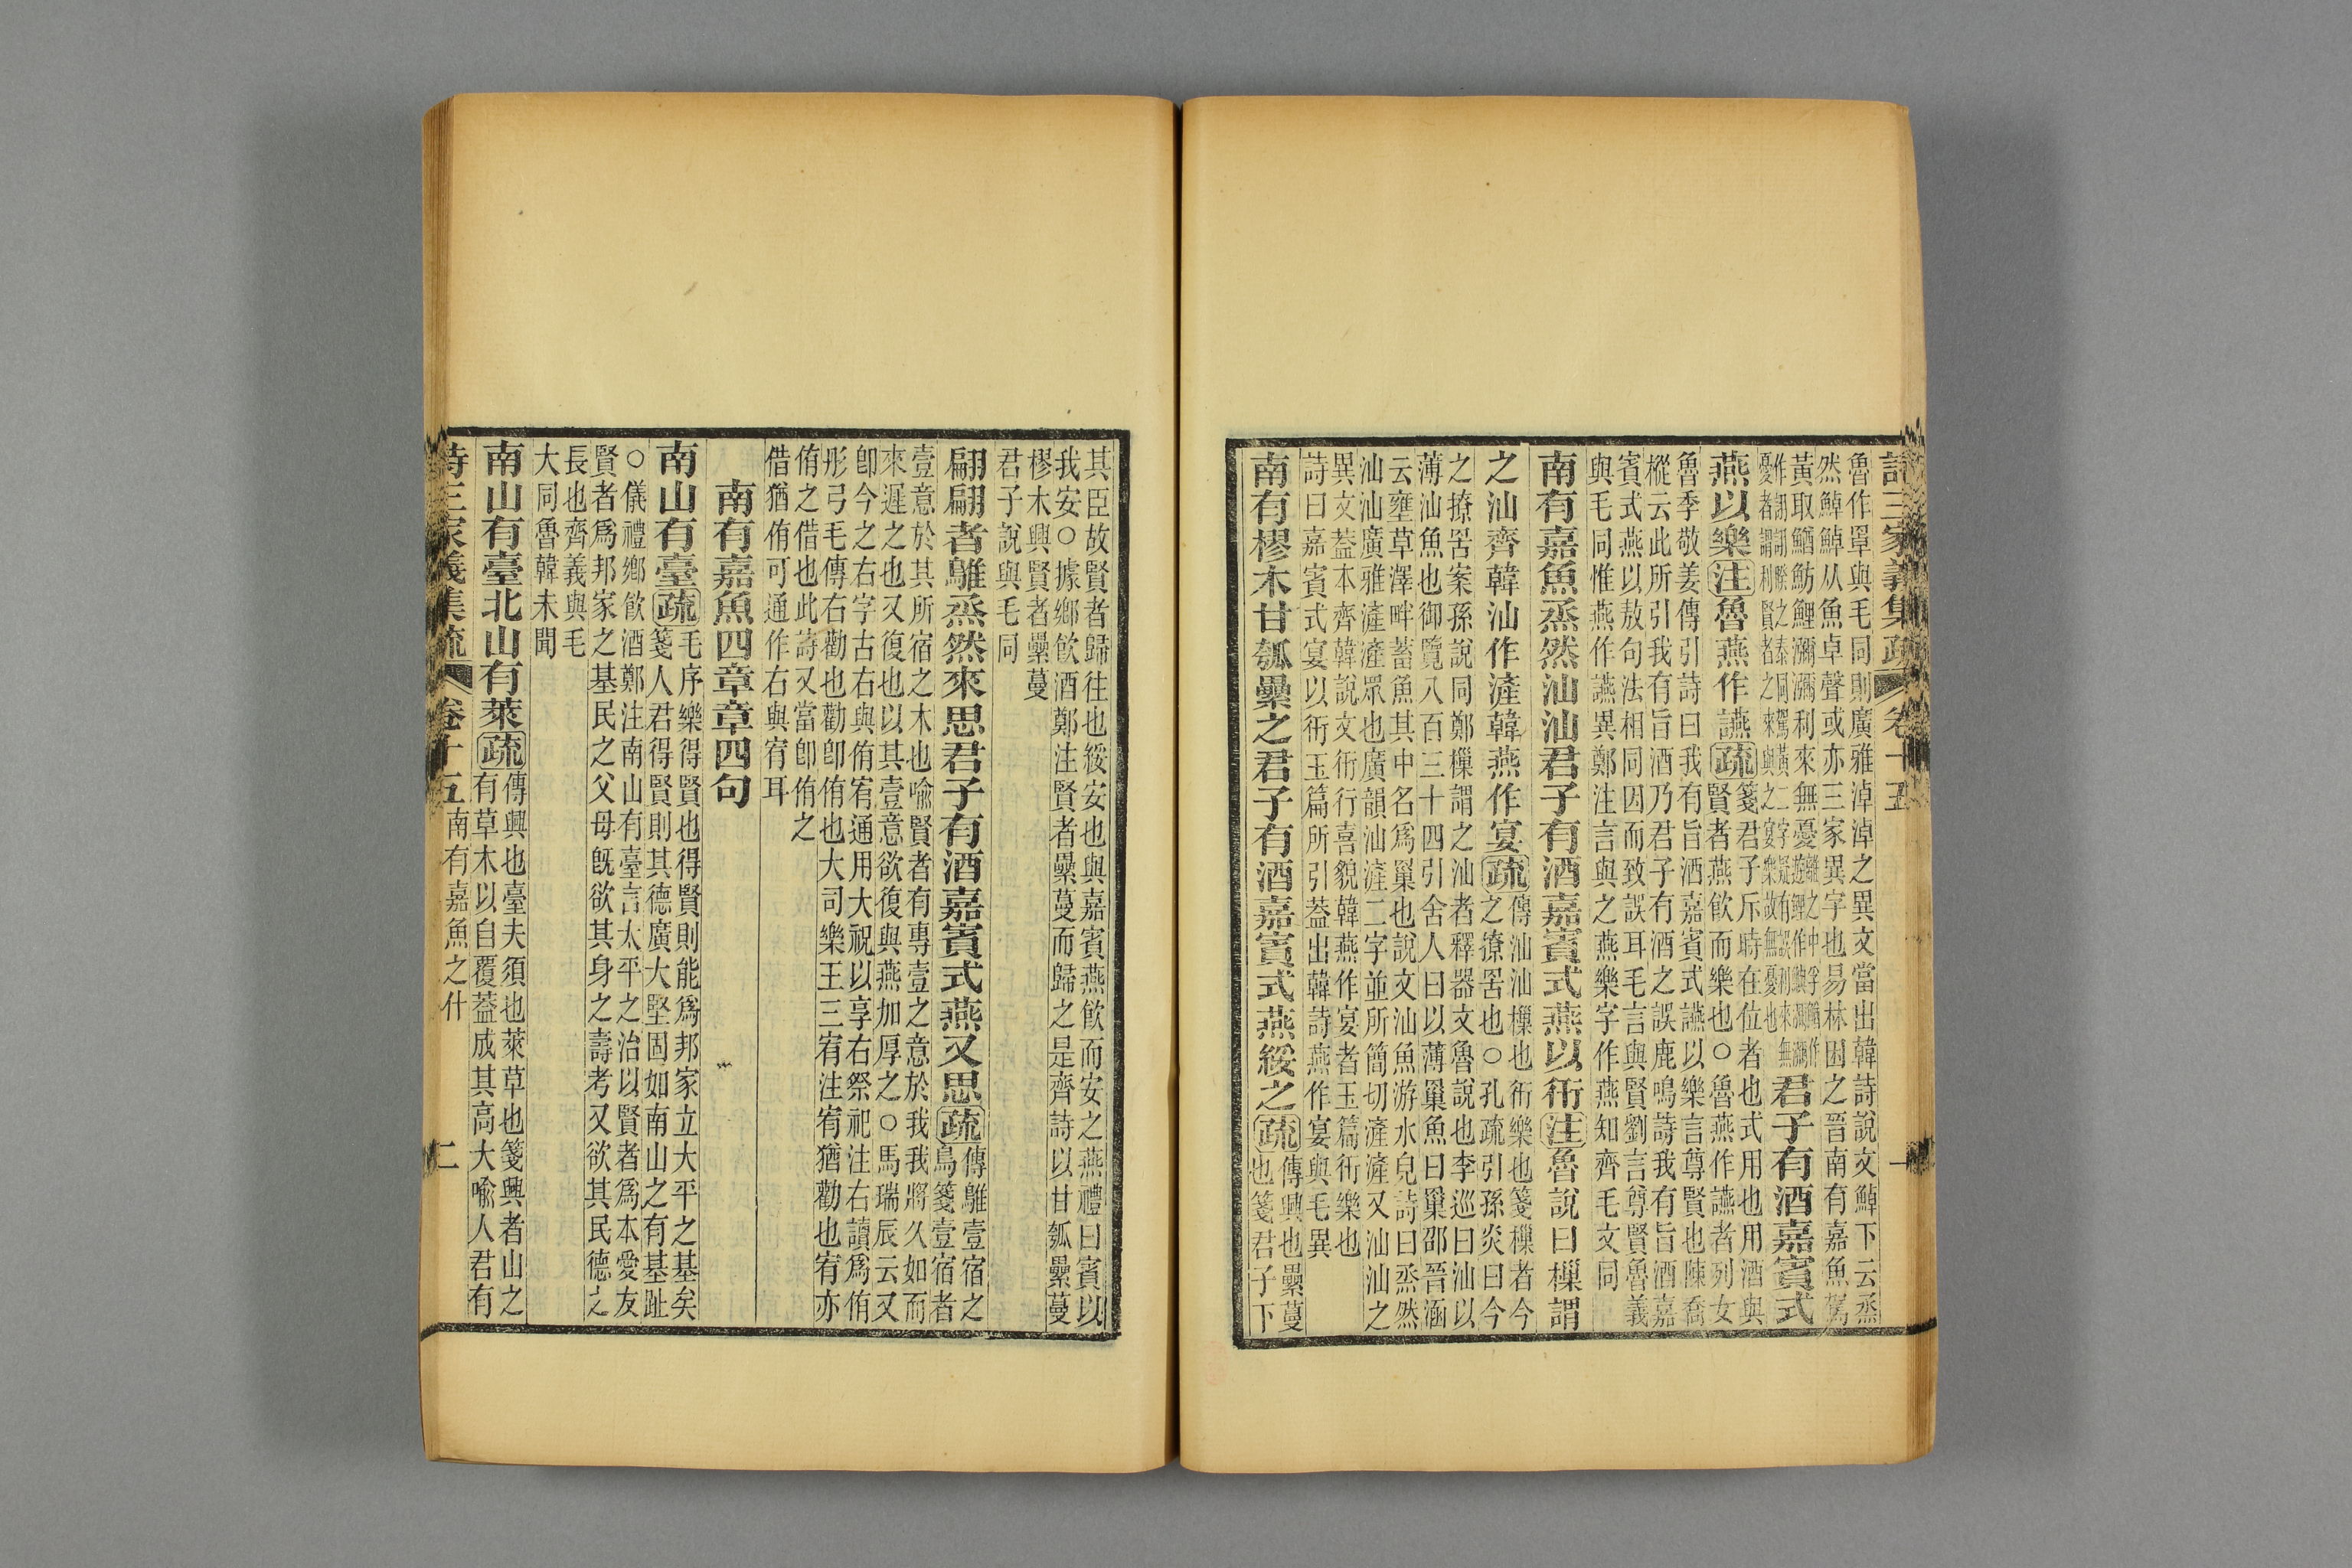 詩三家義集疏 卷十五 一
魯作罩與毛同則廣雅淖淖之異文當出韓詩說文鯙下云烝
然鯙鯙从魚卓聲或亦三家異字也易林困之晉南有嘉魚駕
黃取鰌魴鯉瀰瀰利來無憂
憂者謂利賢者之來與之宴樂故無憂也
君子有酒嘉賓式
燕以樂注魯燕作讌疏箋君子斥時在位者也式用也用酒與
賢者燕飮而樂也○魯燕作讌者列女
魯季敬姜傳引詩曰我有旨酒嘉賓式讌以樂言尊賢也陳喬
樅云此所引我有旨酒乃君子有酒之誤鹿鳴詩我有旨酒嘉
賓式燕以敖句法相同因而致誤耳毛言與賢劉言尊賢魯義
與毛同惟燕作讌異鄭注言與之燕樂字作燕知齊毛文同
南有嘉魚烝然汕汕君子有酒嘉賓式燕以衎注魯說曰樔謂
之汕齊韓汕作滻韓燕作宴疏傳汕汕樔也衎樂也箋樔者今
之撩罟也○孔疏引孫炎曰今
之撩罟案孫說同鄭樔謂之汕者釋器文魯說也李巡曰汕以
薄汕魚也御覽八百三十四引舍人曰以薄罺魚曰罺郭晉涵
云壅草澤畔蓄魚其中名爲罺也說文汕魚游水皃詩曰烝然
汕汕廣雅滻滻眾也廣韻汕滻二字並所簡切滻滻又汕汕之
異文葢本齊韓說文衎行喜貌韓燕作宴者玉篇衎樂也
詩曰嘉賓式宴以衎玉篇所引葢出韓詩燕作宴與毛異
南有樛木甘瓠纍之君子有酒嘉賓式燕綏之疏傳興也纍蔓
也箋君子下
其臣故賢者歸往也綏安也與嘉賓燕飮而安之燕禮曰賓以
我安○據鄉飮酒鄭注賢者纍蔓而歸之是齊詩以甘瓠纍蔓
樛木興賢者纍蔓
君子說與毛同
翩翩者鵻烝然來思君子有酒嘉賓式燕又思疏傳鵻壹宿之
鳥箋壹宿者
壹意於其所宿之木也喩賢者有專壹之意於我我將久如而
來遲之也又復也以其壹意欲復與燕加厚之○馬瑞辰云又
卽今之右字古右與侑宥通用大祝以享右祭祀注右讀爲侑
彤弓毛傳右勸也勸卽侑也大司樂王三宥注宥猶勸也宥亦
侑之借也此詩又當卽侑之
借猶侑可通作右與宥耳
南有嘉魚四章章四句
南山有臺疏毛序樂得賢也得賢則能爲邦家立大平之基矣
箋人君得賢則其德廣大堅固如南山之有基趾
○儀禮鄉飮酒鄭注南山有臺言太平之治以賢者爲本愛友
賢者爲邦家之基民之父母旣欲其身之壽考又欲其民德之
長也齊義與毛
大同魯韓未聞
南山有臺北山有萊疏傳興也臺夫須也萊草也箋興者山之
有草木以自覆葢成其高大喩人君有
詩三家義集疏 卷十五 南有嘉魚之什 二